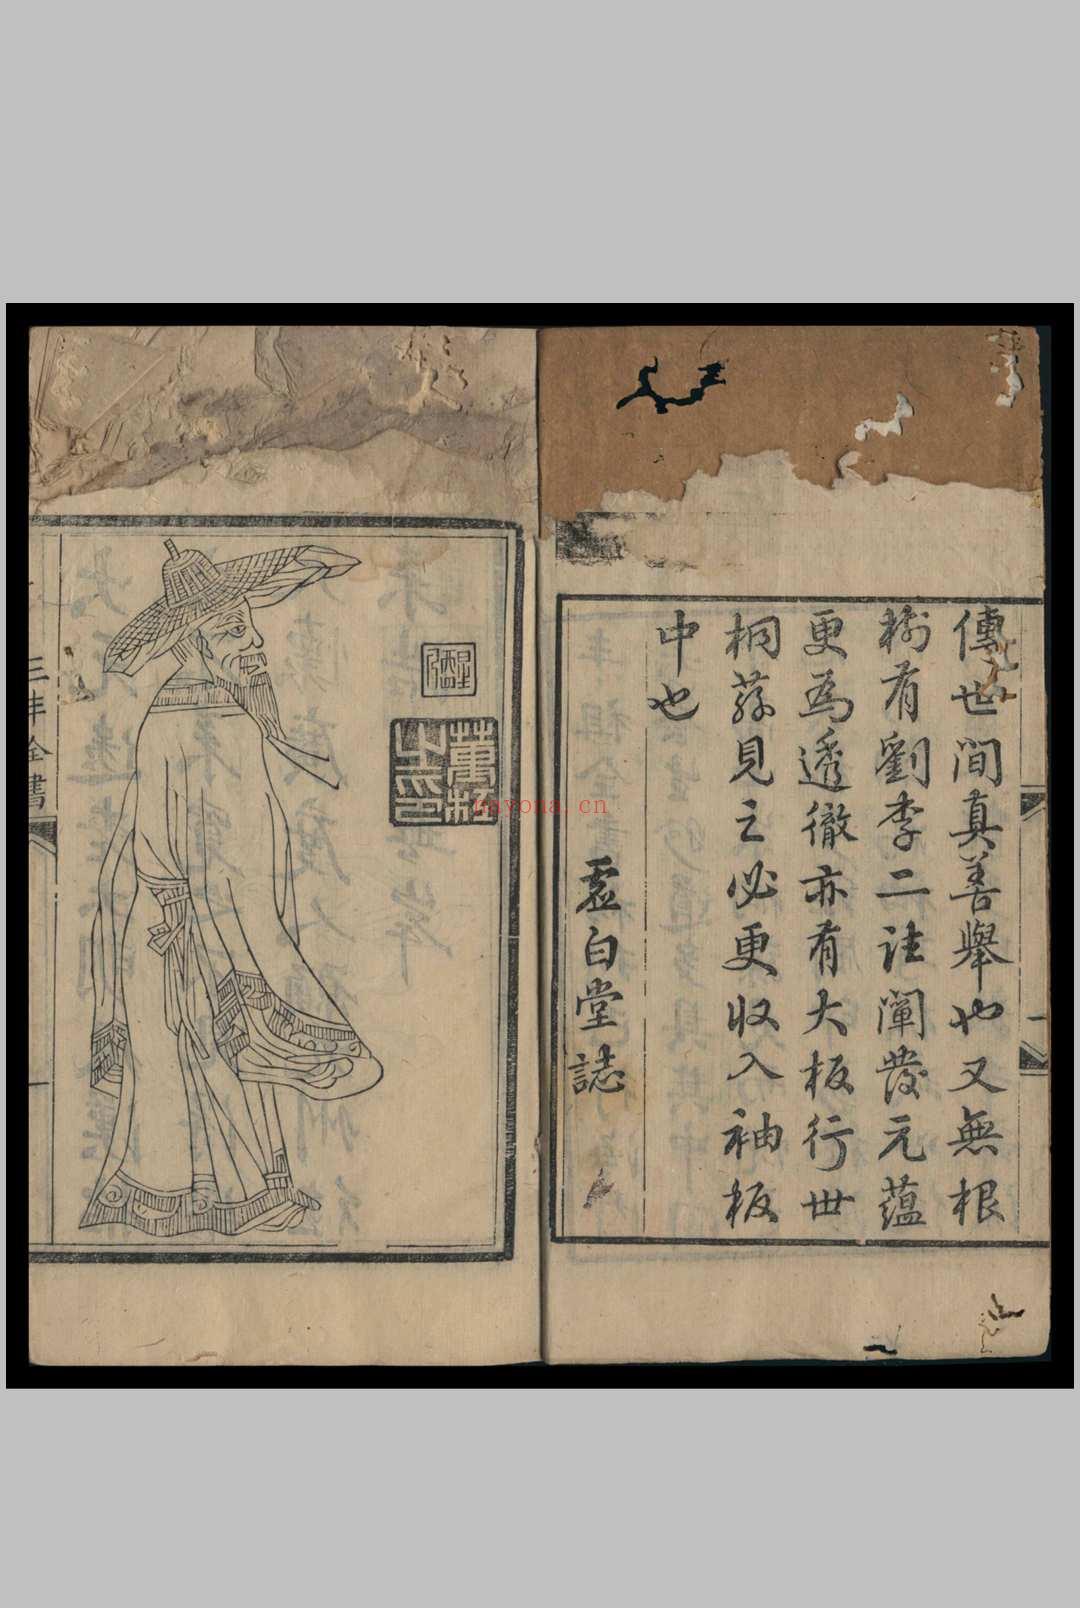 傳世間真善舉也又無根
樹有劉李二註闡發元蘊
更為透徹亦有大板行世
桐蓀見之必更收入袖板
中也
虛白堂誌
三丰全書
一
nayona.cn